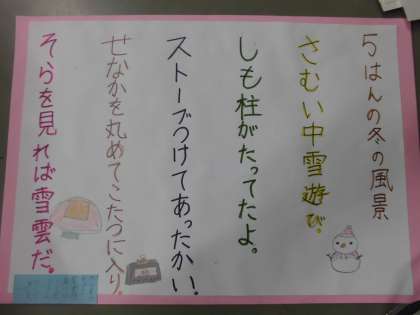 5はんの冬の風景
さむい中雪遊び。
しも柱がたってたよ。
ストーブつけてあったかい!
せなかを丸めてこたつに入り。
そらを見れば雪雲だ。